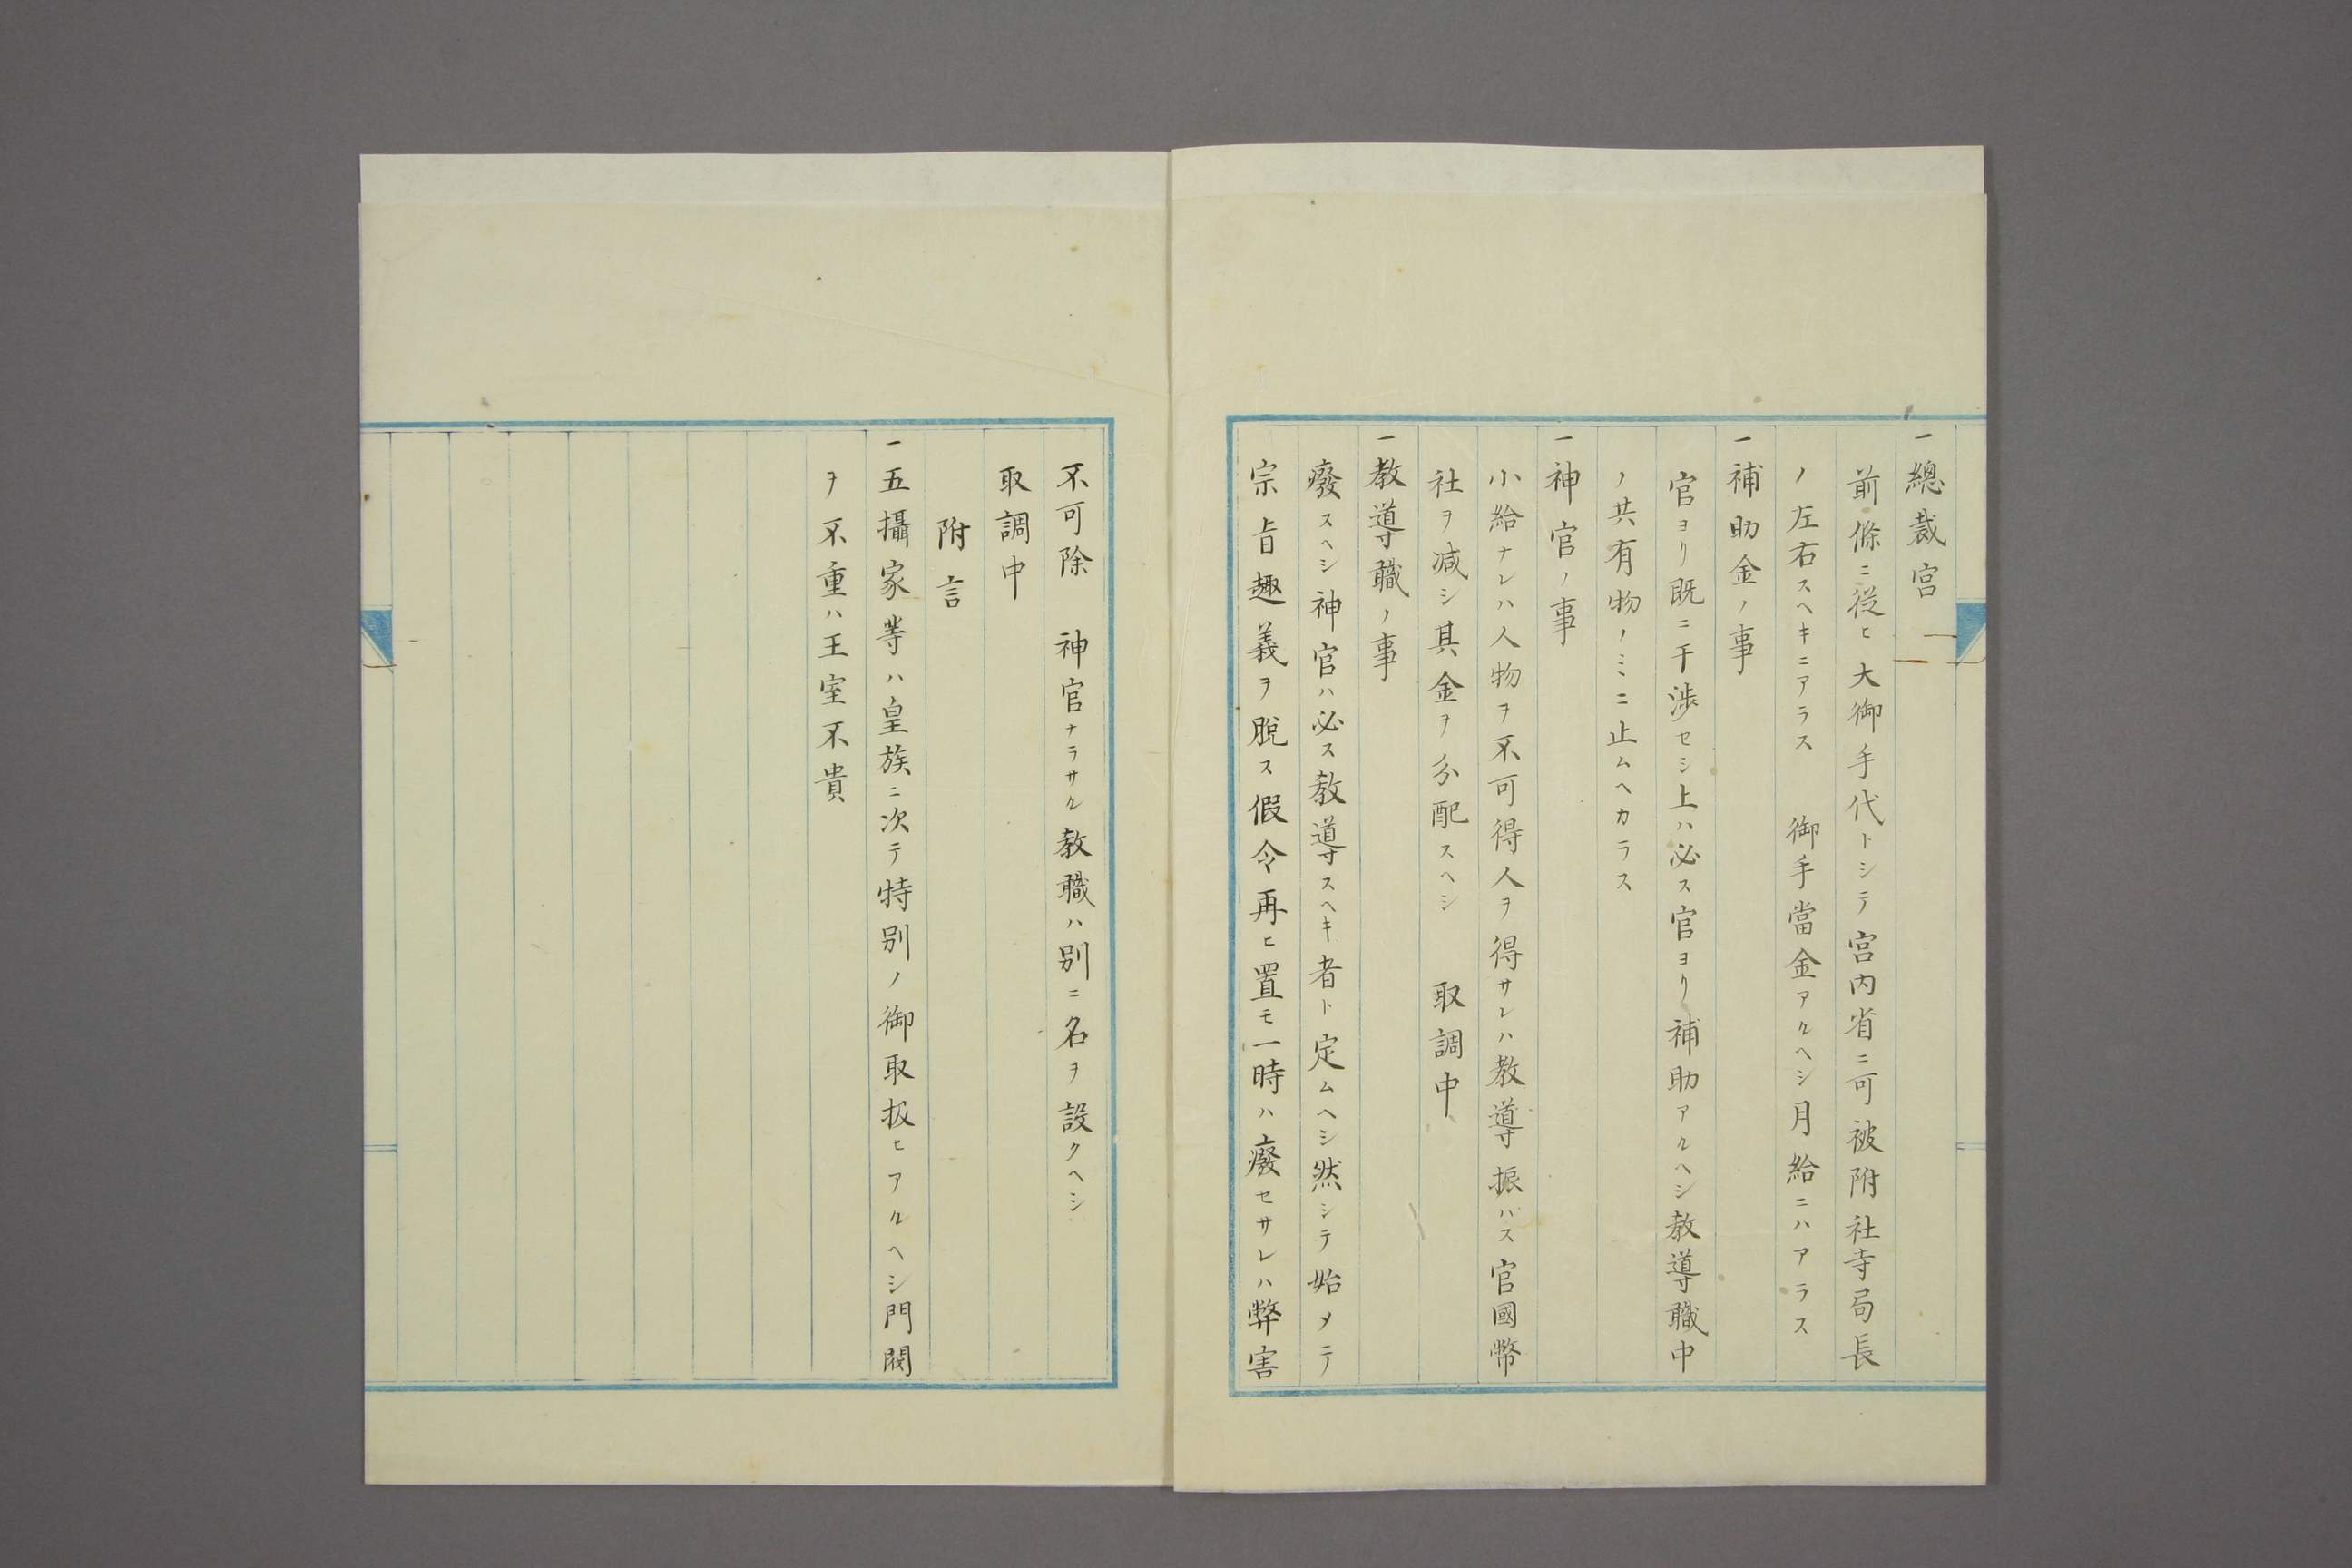 一總裁宮
前條ニ從ヒ大御手代トシテ宮内省ニ可被附社寺局長
ノ左右スヘキニアラス　御手當金アルヘシ月給ニハアラス
一補助金ノ事
官ヨリ既ニ干渉セシ上ハ必ス官ヨリ補助アルヘシ教導職中
ノ共有物ノミニ止ムヘカラス
一神官ノ事
小給ナレハ人物ヲ不可得人ヲ得サレハ教導振ハス官國幣
社ヲ減シ其金ヲ分配スヘシ　取調中
一教導職ノ事
廢スヘシ神官ハ必ス教導スヘキ者ト定ムヘシ然シテ始メテ
宗旨趣義ヲ脱ス假令再ヒ置モ一時ハ癈セサレハ弊害
不可除　神官ナラサル教職ハ別ニ名ヲ設クヘシ
取調中
附言
一五攝家等ハ皇族ニ次テ特別ノ御取扱ヒアルヘシ門閥
ヲ不重ハ王室不貴